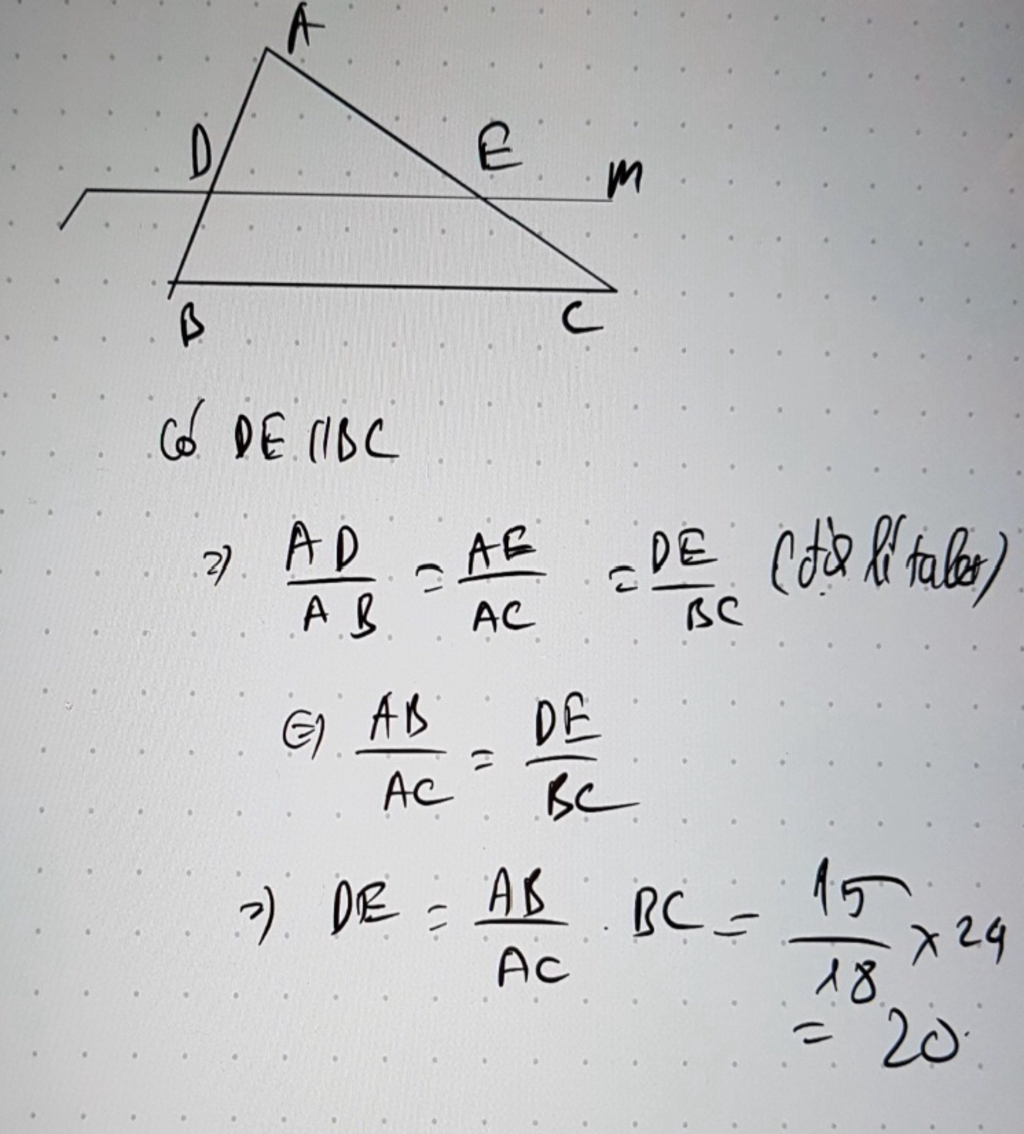 A
D E M
B C
Có DE // BC
=> AD/AB = AE/AC = DE/BC (đ/lí talet)
<=> AB/AC = DE/BC
=> DE = AB/AC . BC = 15/18 x 24
= 20